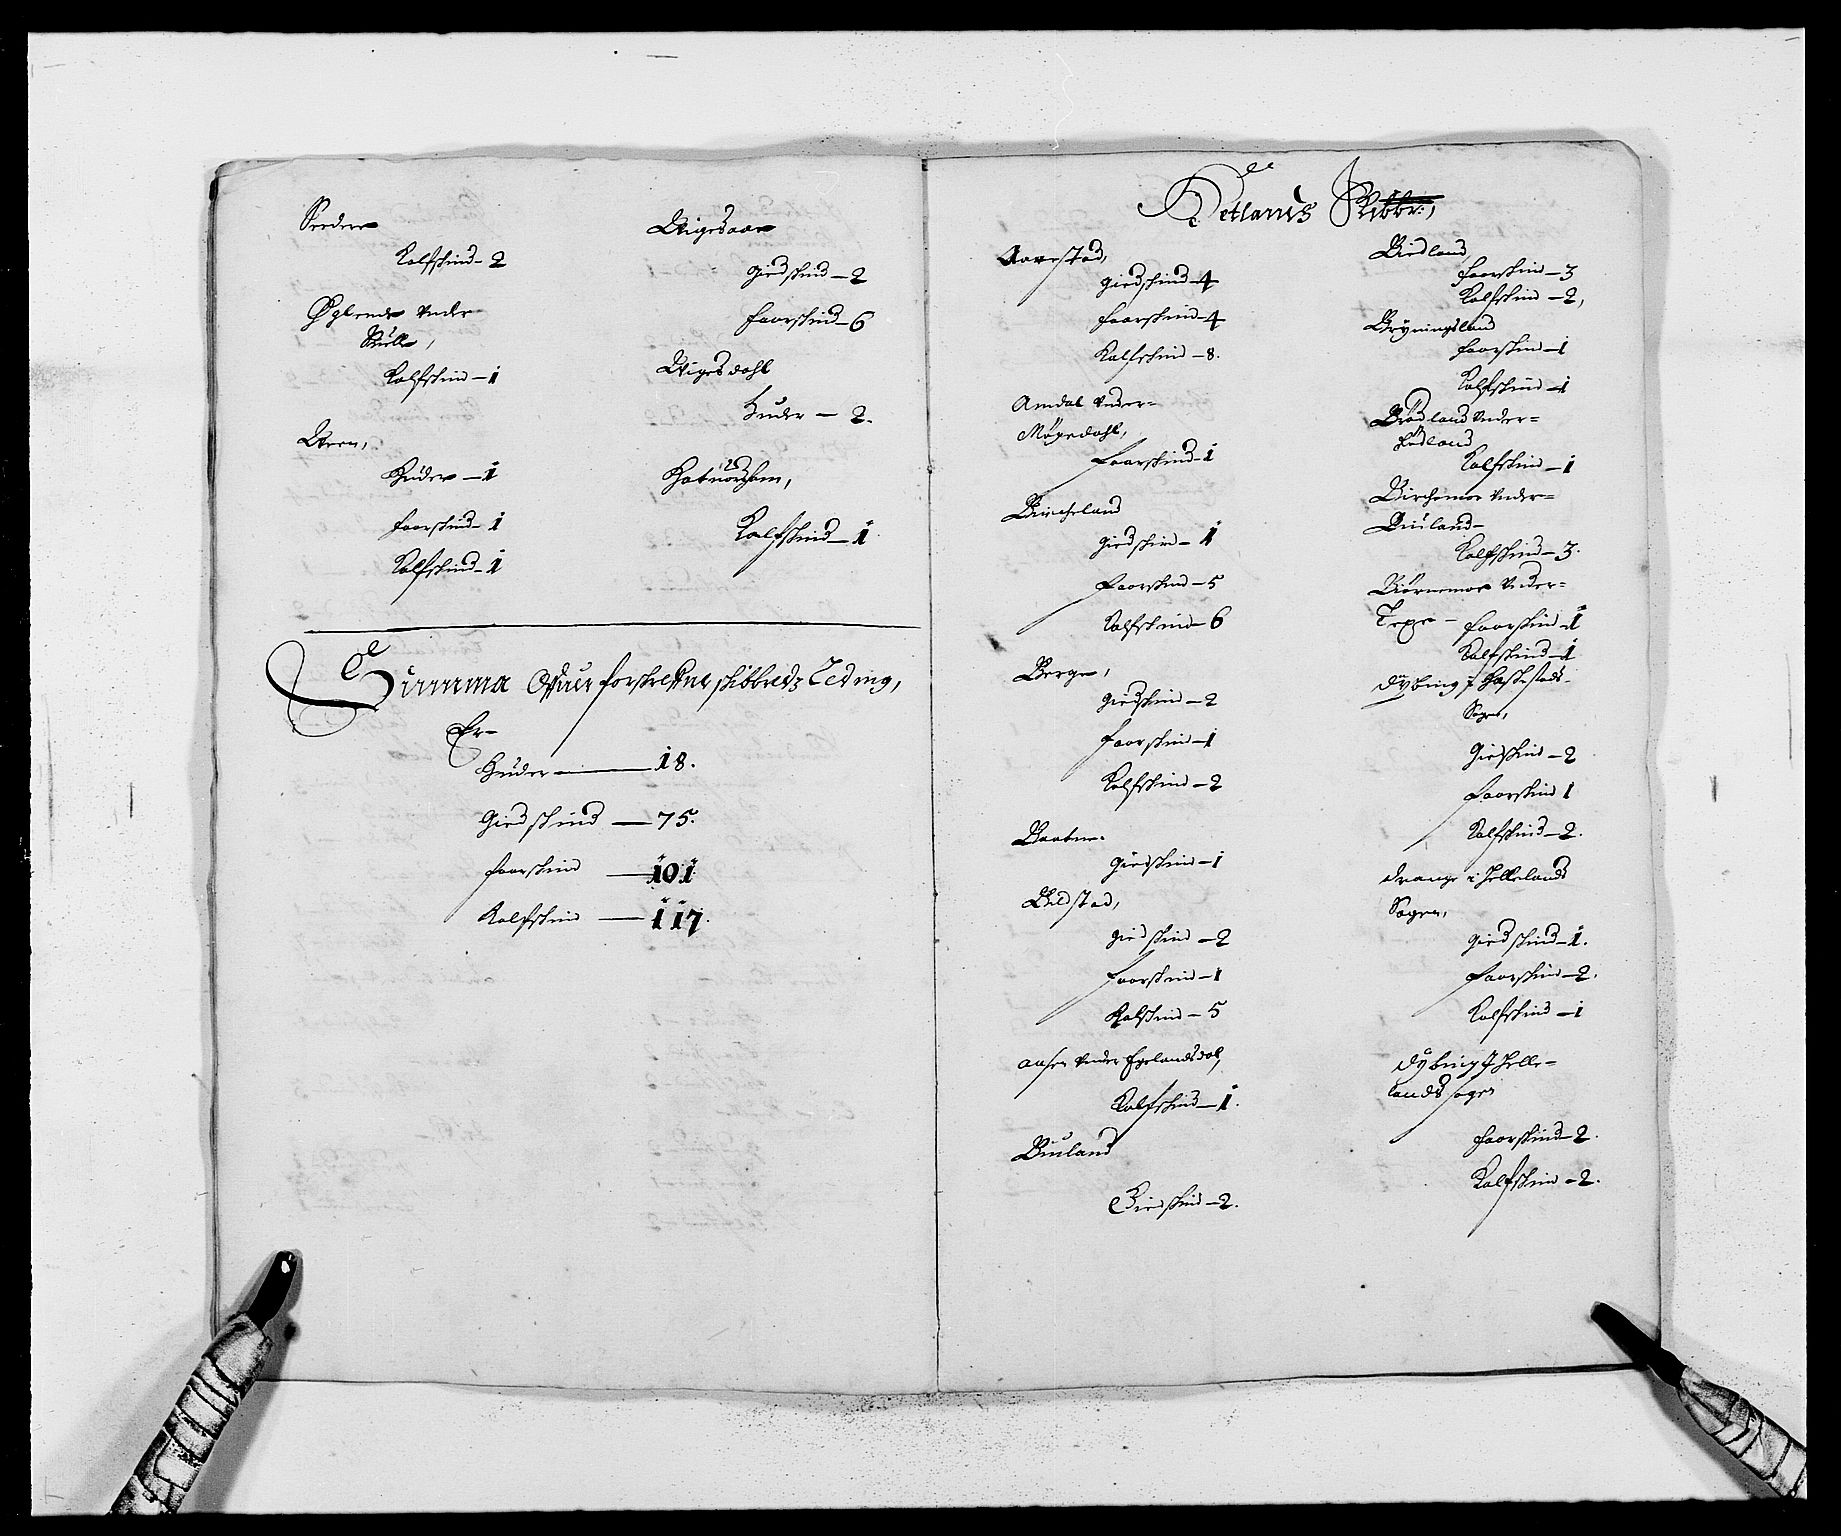 Sordere
Kalfskind - 2
Øglende under
Kalfskind - 1
Hruen,
Huder - 1
Faarskind - 1
Kalfskind - 1
Wigesaae
Giedskind - 2
Faarskind - 6
Wigesdahl
Huder - 2.
Kalfskind - 1
Summa Ofuer forskrefne skibbreds Teding,
Er-
Huder - 18.
Giedskind - 75.
Faarskind - 101
Kalfskind - 117.
Hetlands Skibbr:,
Aarrestad,
Giedskind - 4
Faarskind - 4
Kalfskind - 8.
Amdal under-
Møgedahl,
Faarskind - 1
Bircheland
Giedskind - 1
Faarskind - 5
Kalfskind - 6
Berge,
Giedskind - 2
Faarskind - 1
Kalfskind - 2
Giedskind - 1
Bilstad,
Giedskind - 2
Faarskind - 1
Kalfskind - 5
Aasen under Egelandsdal,
Kalfskind - 1.
Biuland
Giedskind - 2.
Birland,
Faarskind - 3
Kalfskind - 2,
Bryningsland
Faarskind - 1
Kalfskind - 1
Brødland under-
Kalfskind - 1
Birchemoe under-
Biuland-
Kalfskind - 3.
Biørnemoe under-
Texe - Faarskind - 1
Kalfskind - 1
Dybing i Haskestads-
Sogn,
Giedskind - 2
Faarskind 1
Kalfskind - 2.
Drange i Hellelands
Sogen,
Giedskind - 1.
Faarskind - 2.
Kalfskind - 1
Dybing i Helle-
lands sogen
Faarskind - 2.
Kalfskind - 2.